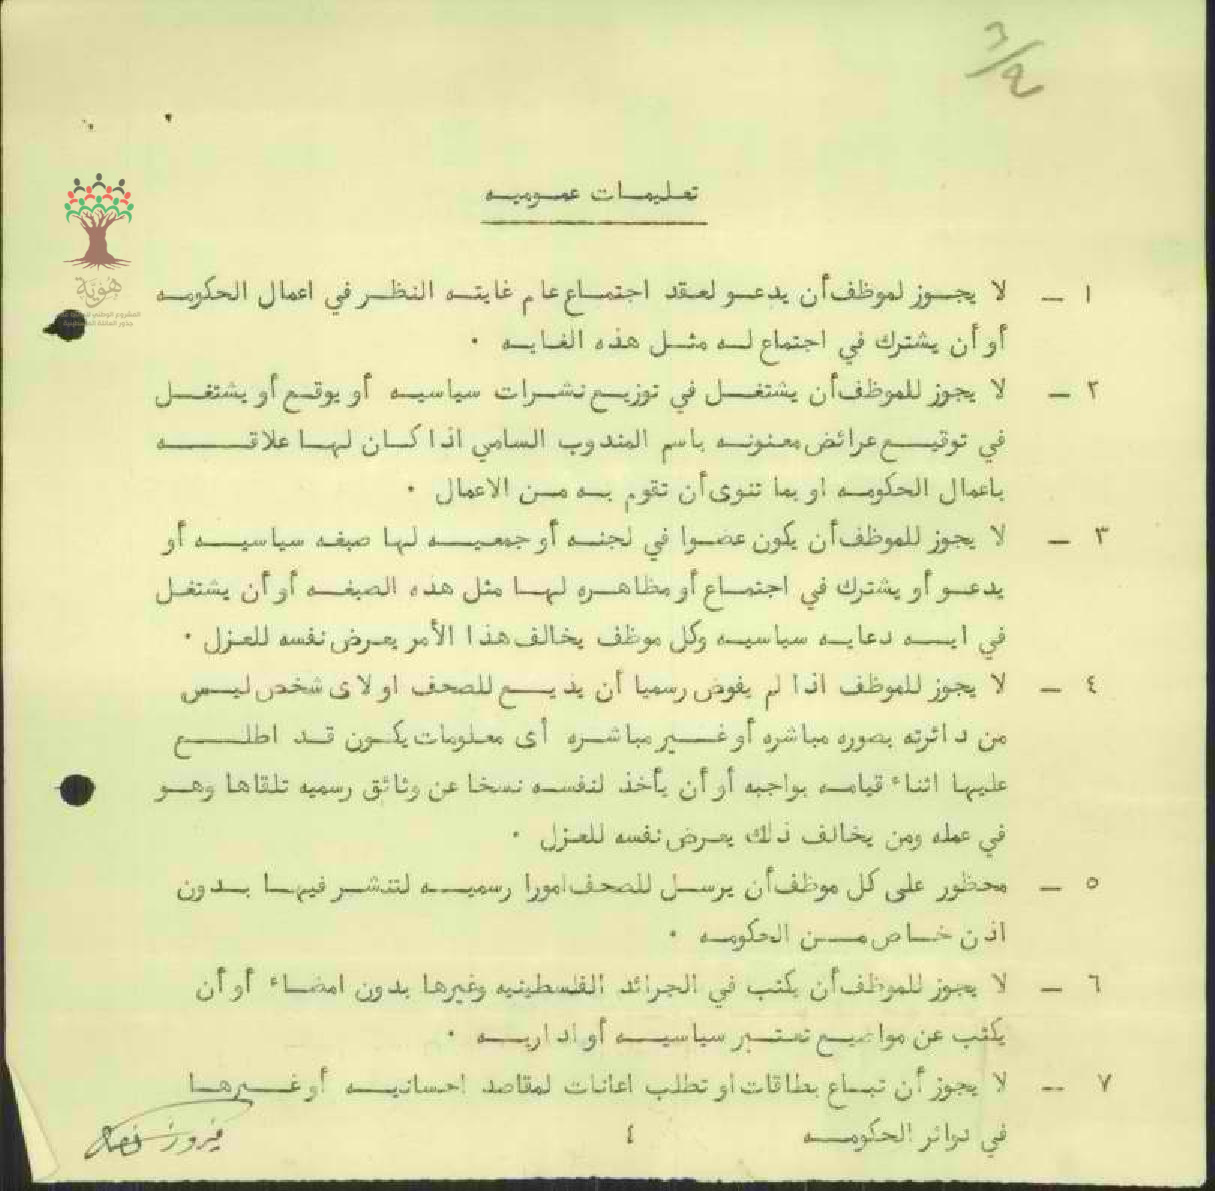 ٦/٩
تعليمات عموميه
هُوِيَّة
١ — لا يجوز لموظف أن يدعو لعقد اجتماع عام غايته النظر في اعمال الحكومه
أو أن يشترك في اجتماع له مثل هذه الغايه ٠
٢ — لا يجوز للموظف أن يشتغل في توزيع نشرات سياسيه أو يوقع أو يشتغل
في توقيع عرائض معنونه باسم المندوب السامي اذا كان لها علاقه
باعمال الحكومه او بما تنوى أن تقوم به من الاعمال ٠
٣ — لا يجوز للموظف أن يكون عضوا في لجنه أو جمعيه لها صبغه سياسيه أو
يدعو أو يشترك في اجتماع أو مظاهره لها مثل هذه الصبغه أو أن يشتغل
في ايه دعايه سياسيه وكل موظف يخالف هذا الأمر يعرض نفسه للعزل ٠
٤ — لا يجوز للموظف اذا لم يفوض رسميا أن يذيع للصحف او لاى شخص ليس
من دائرته بصوره مباشره أو غير مباشره أى معلومات يكون قد اطلع
عليها اثناء قيامه بواجبه أو أن يأخذ لنفسه نسخا عن وثائق رسميه تلقاها وهو
في عمله ومن يخالف ذلك يعرض نفسه للعزل ٠
٥ — محظور على كل موظف أن يرسل للصحف امورا رسميه لتنشر فيها بدون
اذن خاص من الحكومه ٠
٦ — لا يجوز للموظف أن يكتب في الجرائد الفلسطينيه وغيرها بدون امضاء أو أن
يكتب عن مواضيع تعتبر سياسيه أو اداريه ٠
٧ — لا يجوز أن تباع بطاقات او تطلب اعانات لمقاصد احسانيه أو غيرها
في دوائر الحكومه ٤